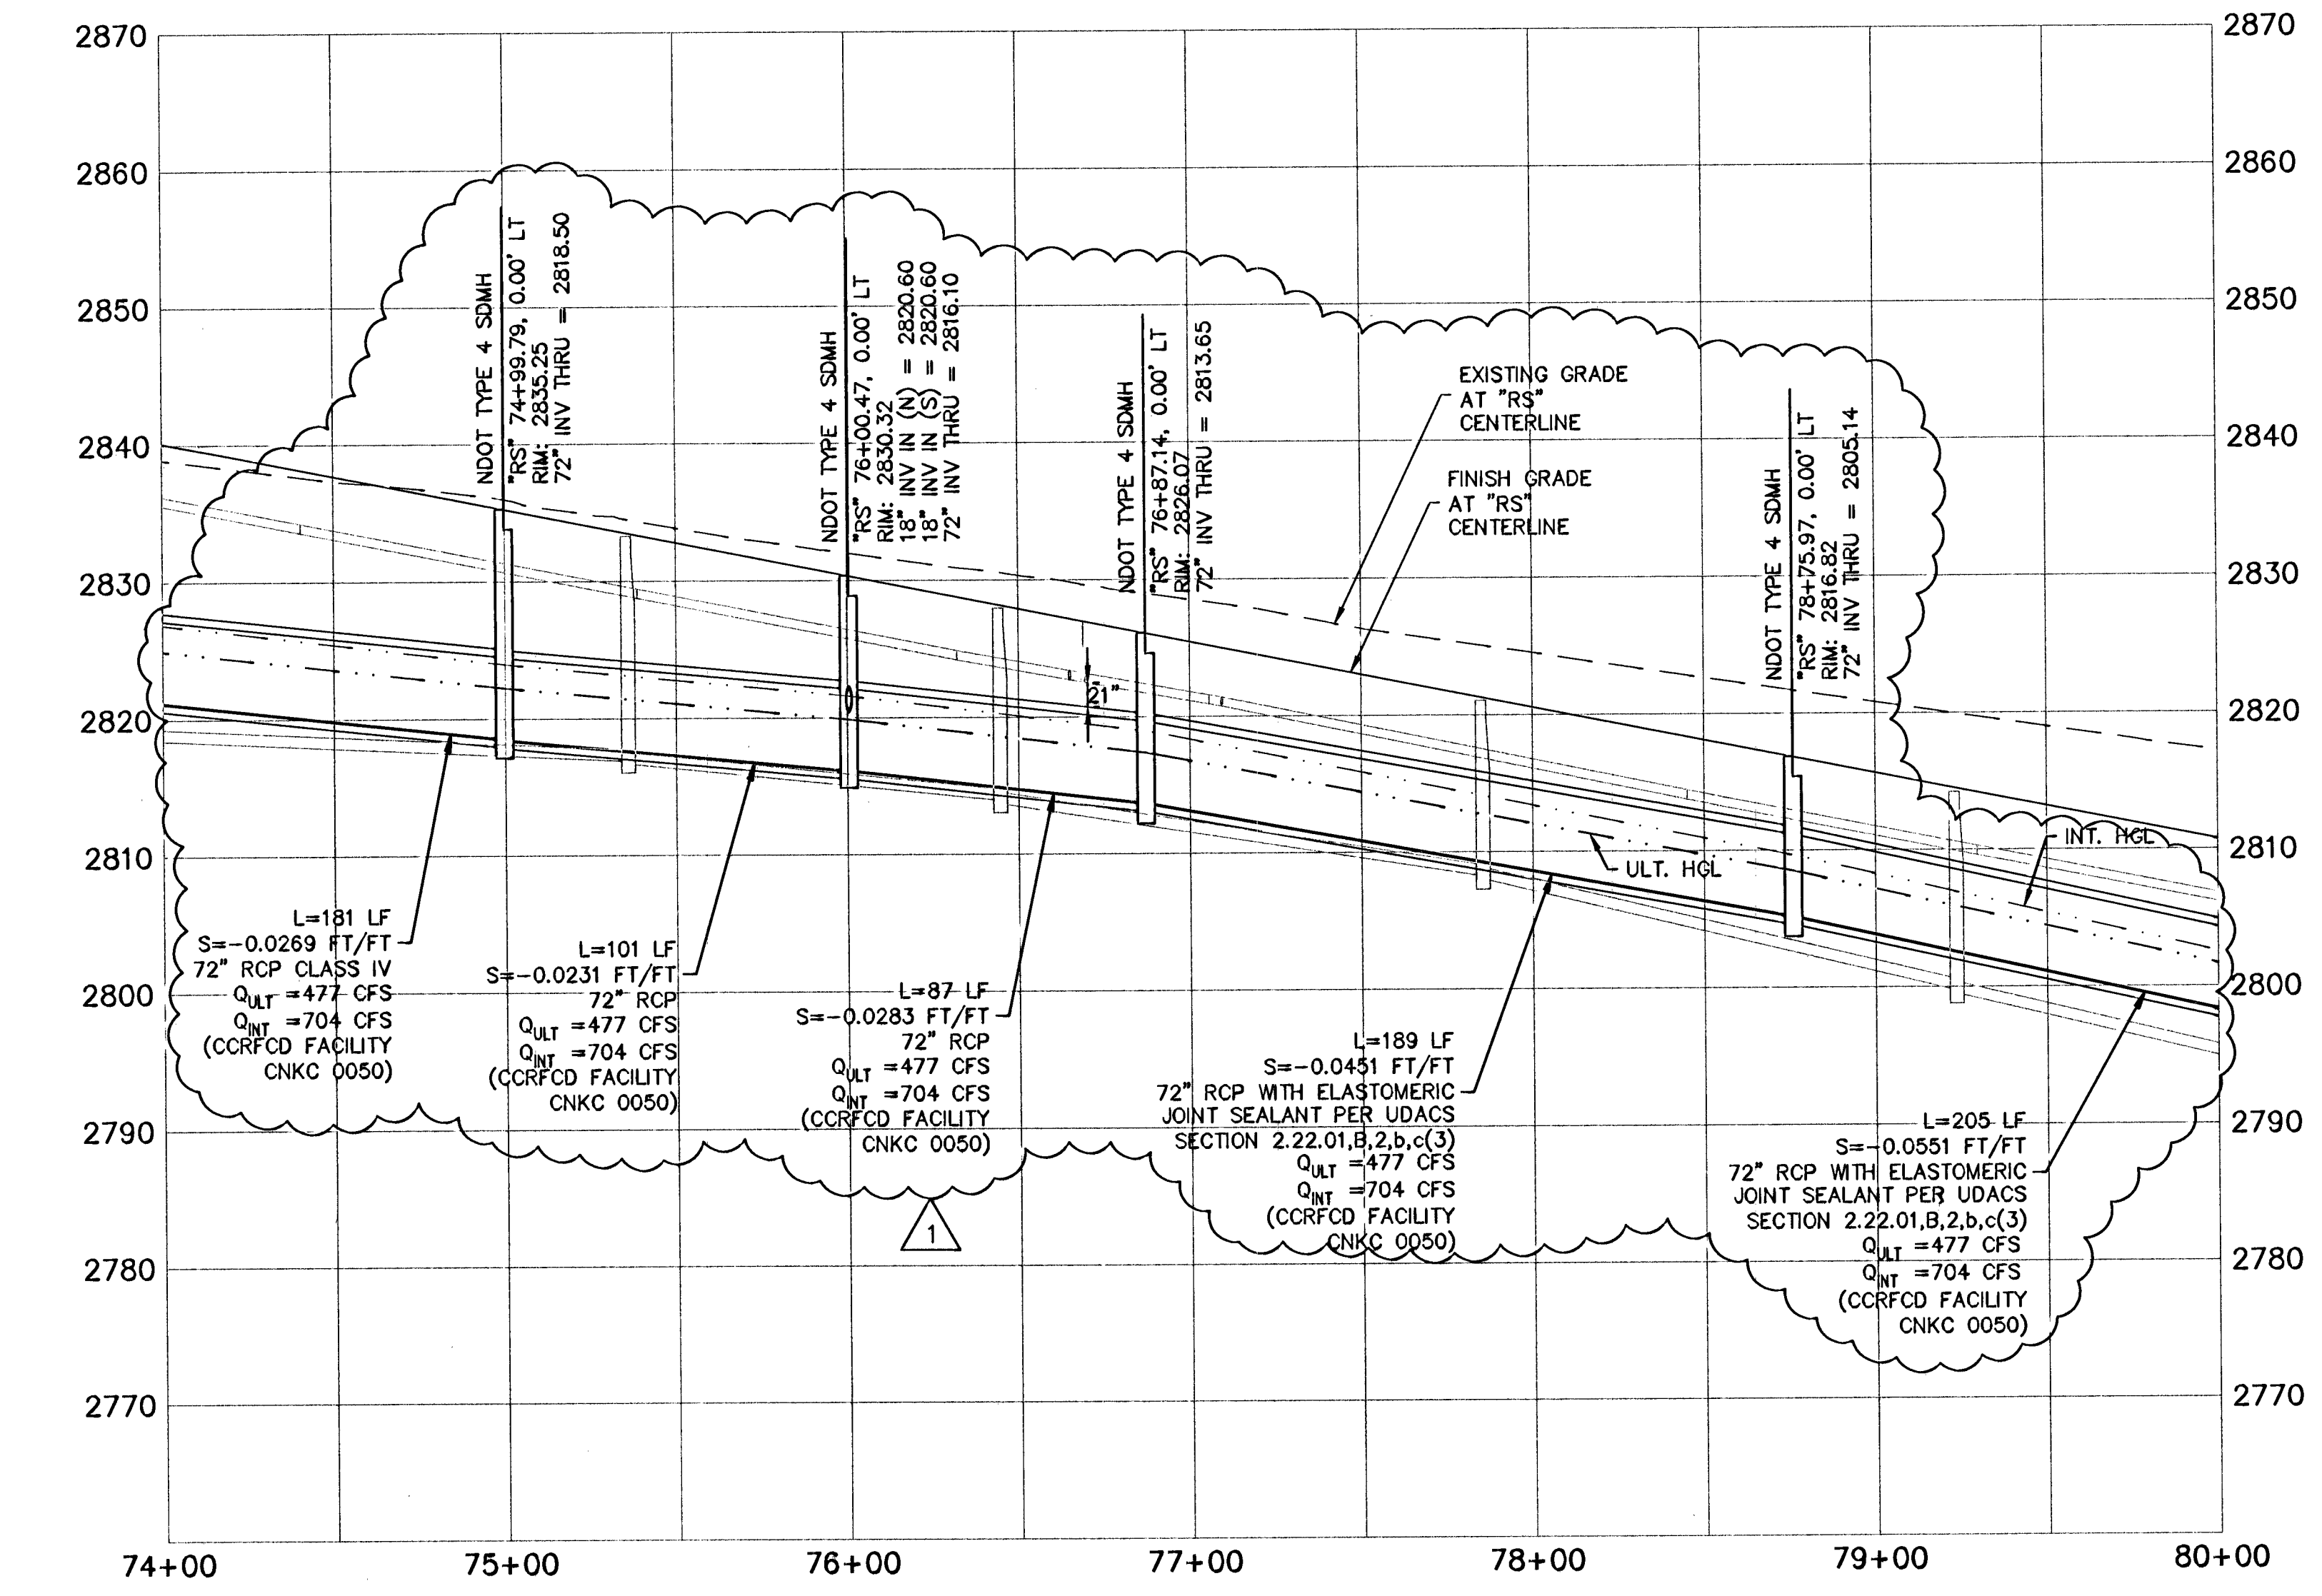 2870
2860
2850
2840
2830
2820
2810
2800
2790
2780
2770
2870
2860
2850
2840
2830
2820
2810
2800
2790
2780
2770
NDOT TYPE 4 SDMH
"RS" 74+99.79, 0.00' LT
RIM: 2835.25
72" INV THRU = 2818.50
NDOT TYPE 4 SDMH
"RS" 76+00.47, 0.00' LT
RIM: 2830.32
18" INV IN (N) = 2820.60
18" INV IN (S) = 2820.60
72" INV THRU = 2816.10
NDOT TYPE 4 SDMH
"RS" 76+87.14, 0.00' LT
RIM: 2826.07
72" INV THRU = 2813.65
EXISTING GRADE
AT "RS"
CENTERLINE
FINISH GRADE
AT "RS"
CENTERLINE
NDOT TYPE 4 SDMH
"RS" 78+75.97, 0.00' LT
RIM: 2816.82
72" INV THRU = 2805.14
21"
ULT. HGL
INT. HGL
L=181 LF
S=-0.0269 FT/FT
72" RCP CLASS IV
QULT =477 CFS
QINT =704 CFS
(CCRFCD FACILITY
CNKC 0050)
L=101 LF
S=-0.0231 FT/FT
72" RCP
QULT =477 CFS
QINT =704 CFS
(CCRFCD FACILITY
CNKC 0050)
L=87 LF
S=-0.0283 FT/FT
72" RCP
QULT =477 CFS
QINT =704 CFS
(CCRFCD FACILITY
CNKC 0050)
L=189 LF
S=-0.0451 FT/FT
72" RCP WITH ELASTOMERIC
JOINT SEALANT PER UDACS
SECTION 2.22.01,B,2,b,c(3)
QULT =477 CFS
QINT =704 CFS
(CCRFCD FACILITY
CNKC 0050)
L=205 LF
S=-0.0551 FT/FT
72" RCP WITH ELASTOMERIC
JOINT SEALANT PER UDACS
SECTION 2.22.01,B,2,b,c(3)
QULT =477 CFS
QINT =704 CFS
(CCRFCD FACILITY
CNKC 0050)
1
74+00
75+00
76+00
77+00
78+00
79+00
80+00